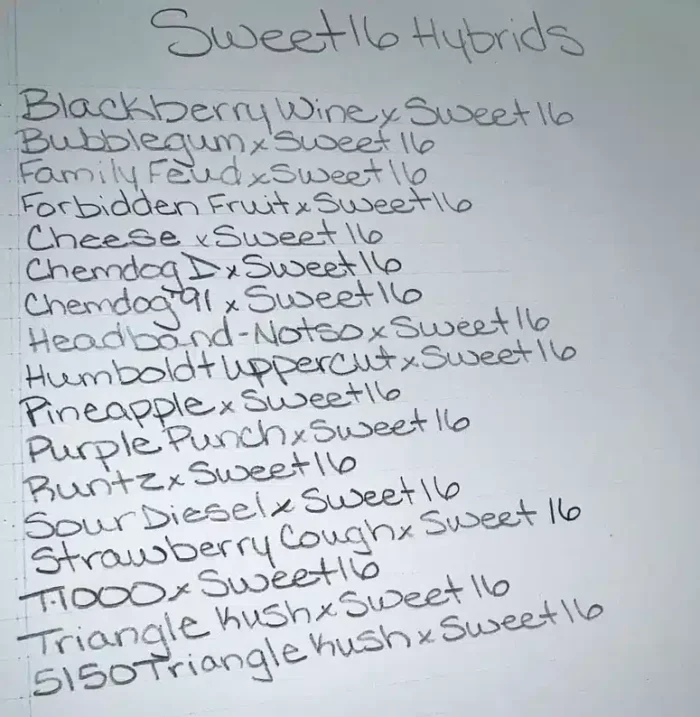 Sweet16 Hybrids
Blackberry Wine x Sweet 16
Bubblegum x Sweet 16
Family Feud x Sweet 16
Forbidden Fruit x Sweet 16
Cheese x Sweet 16
Chemdog D x Sweet 16
Chemdog '91 x Sweet 16
Headband-Notso x Sweet 16
Humboldt Uppercut x Sweet 16
Pineapple x Sweet 16
Purple Punch x Sweet 16
Runtz x Sweet 16
Sour Diesel x Sweet 16
Strawberry Cough x Sweet 16
T-1000 x Sweet 16
Triangle Kush x Sweet 16
5150 Triangle Kush x Sweet 16